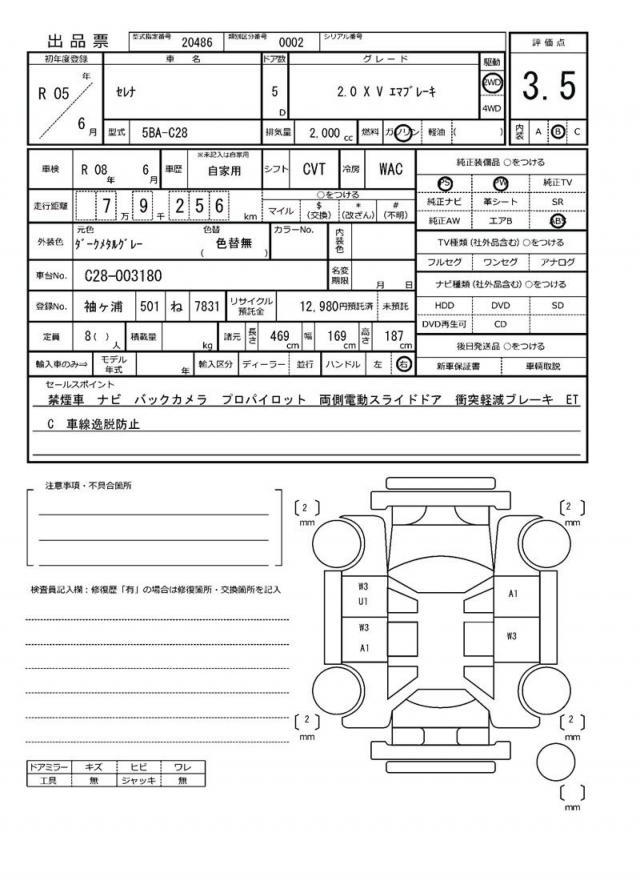 出品票 型式指定番号 20486 類別区分番号 0002 シリアル番号
初年度登録 車名 ドア数 グレード 駆動 評価点
R 05 年 6 月 セレナ 5 D 2.0 X V エマブレーキ 2WD 4WD 3.5
型式 5BA-C28 排気量 2,000 cc 燃料 ガソリン 軽油 ( ) 内装 A B C
車検 R 08 年 6 月 車歴 ※未記入は自家用 自家用 シフト CVT 冷房 WAC 純正装備品 ○をつける
PS PW 純正TV
走行距離 7 万 9 千 2 5 6 km ○をつける マイル $ (交換) * (改ざん) # (不明) 純正ナビ 革シート SR
純正AW エアB ABS
外装色 元色 ダークメタルグレー 色替 ( 色替無 ) カラーNo. 内装色 TV種類 (社外品含む) ○をつける
フルセグ ワンセグ アナログ
車台No. C28-003180 名変期限 月 日 ナビ種類 (社外品含む) ○をつける
登録No. 袖ヶ浦 501 ね 7831 リサイクル預託金 12,980円預託済 未預託 HDD DVD SD
DVD再生可 CD
定員 8( )人 積載量 kg 諸元 長さ 469 cm 幅 169 cm 高さ 187 cm 後日発送品 ○をつける
輸入車のみ⇒ モデル年式 年 輸入区分 ディーラー 並行 ハンドル 左 右 新車保証書 車輌取説
セールスポイント
禁煙車 ナビ バックカメラ プロパイロット 両側電動スライドドア 衝突軽減ブレーキ ET
C 車線逸脱防止
注意事項・不具合箇所
検査員記入欄：修復歴「有」の場合は修復箇所・交換箇所を記入
[2] mm
[2] mm
W3
U1
A1
W3
A1
W3
[2] mm
[2] mm
[ ] mm
ドアミラー キズ ヒビ ワレ
工具 無 ジャッキ 無